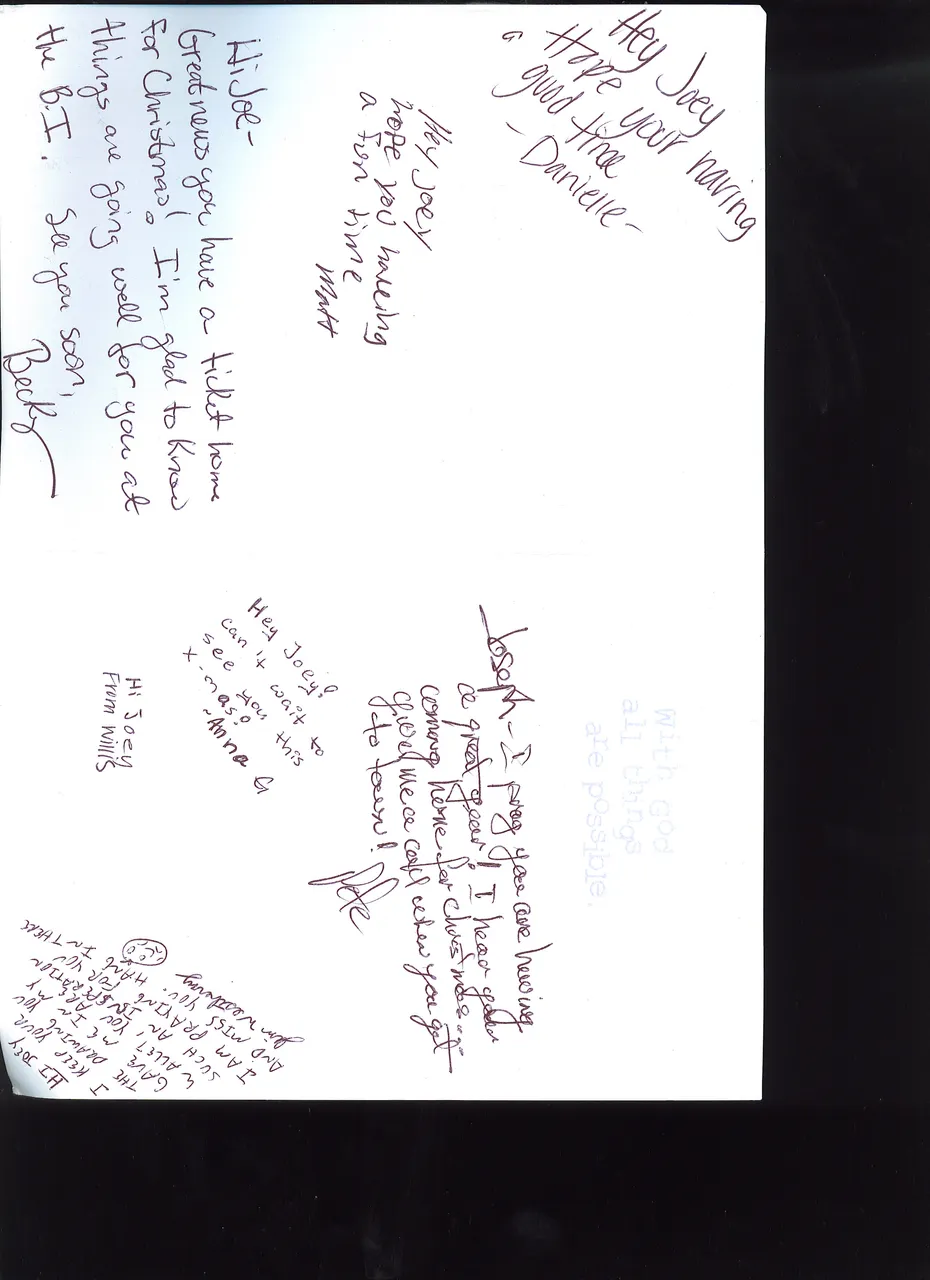 Hey Joey
Hope your having
a good time
- Danielle -
Hey Joey
hope you haveing
a fun time
Matt
Hi Joe -
Great news you have a ticket home
for Christmas! I'm glad to know
things are going well for you at
the B.I. See you soon,
Becky
with God
all things
are possible.
Joseph - I pray you are having
a great year! I hear your
coming home for christmas...
give me a call when you get
to town!
Pete
Hey Joey!
can't wait to
see you this
x-mas!
Anna G
Hi Joey
From Willis
HI JOEY
I KEEP YOUR
THE DRAWING YOU
GAVE ME IN MY
WALLET. YOU ARE
SUCH AN, INSPERATION
I AM PRAYING FOR YOU
AND MISS YOU. HANG IN THERE
Jim